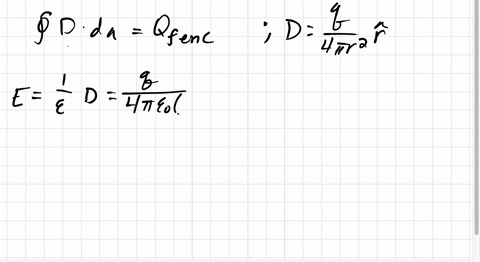 ∮ D · da = Q_fenc ; D = q / 4πr² r̂
E = 1/ε D = q / 4πε₀(